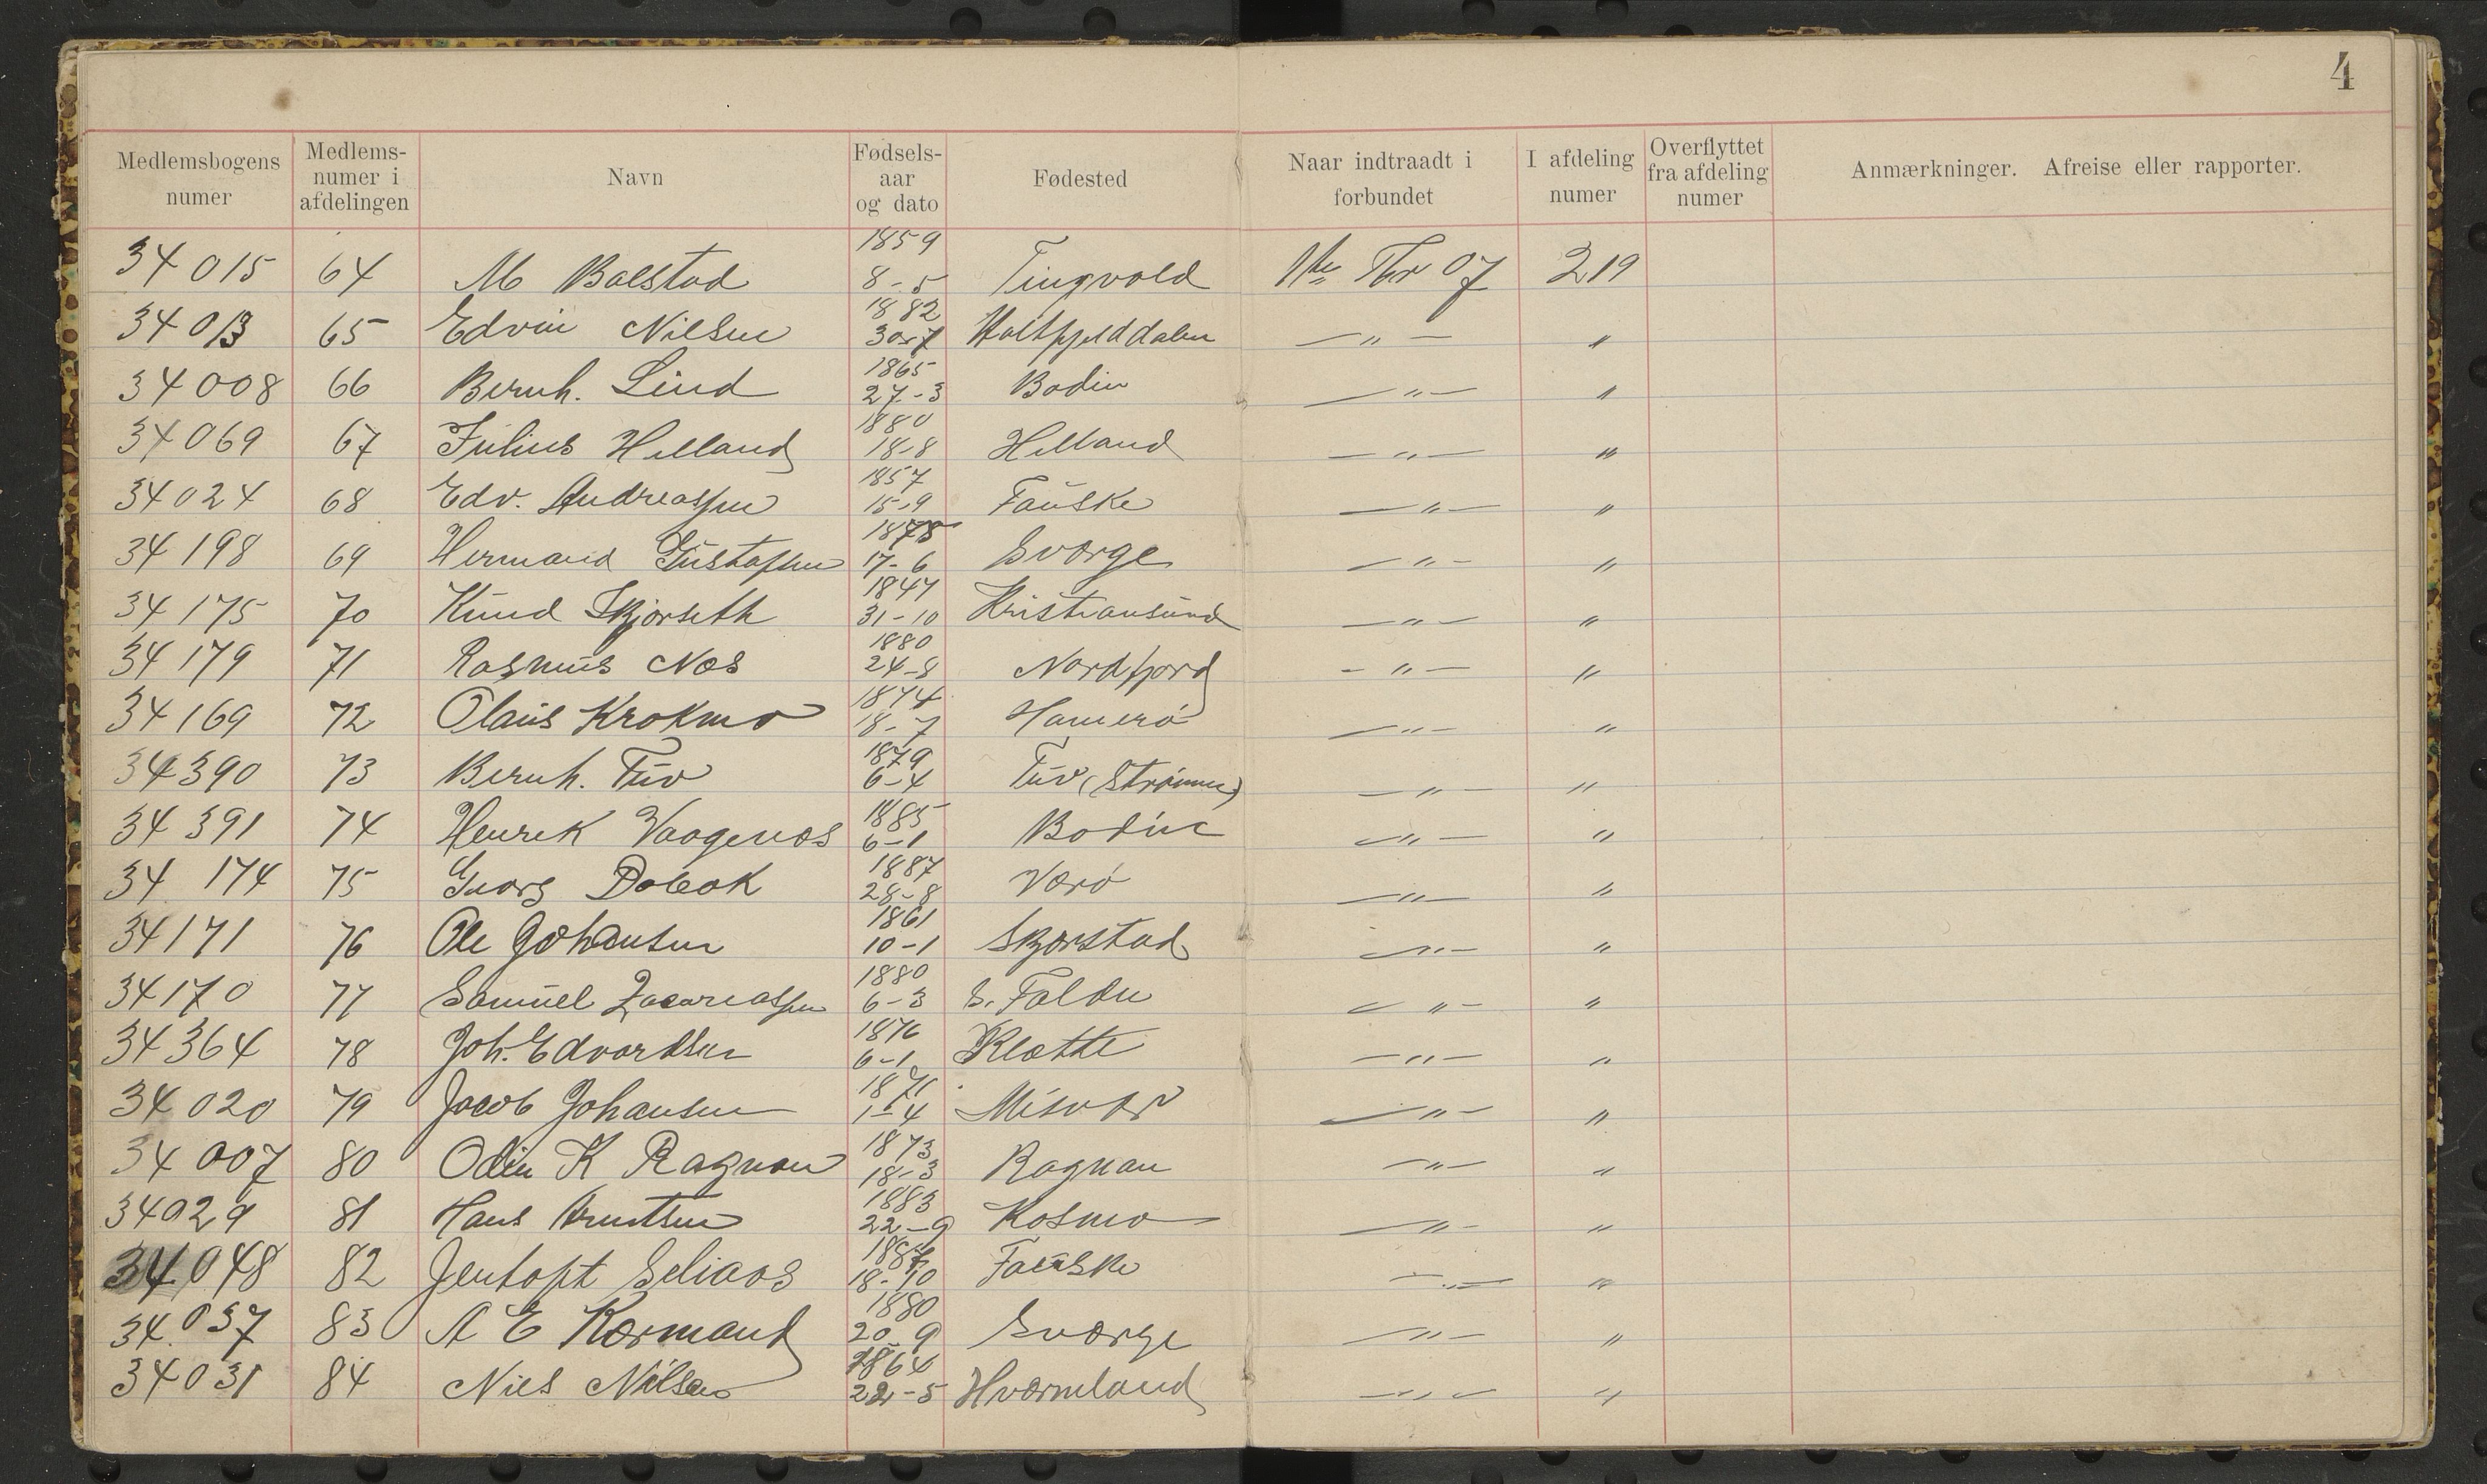 4
Medlemsbogens numer | Medlems-numer i afdelingen | Navn | Fødsels-aar og dato | Fødested | Naar indtraadt i forbundet | I afdeling numer | Overflyttet fra afdeling numer | Anmærkninger. Afreise eller rapporter.
34 015 64 M Balstad 1859 8-5 Tingvold 1ste 07 219
34 013 65 Edvin Nilsen 1882 30-7 Holtfjelddalen — " — "
34 008 66 Bernh. Lind 1865 27-3 Bodin — " — "
34 069 67 Julius Helland 1880 18-8 Helland — " — "
34 024 68 Edv. Andreassen 1857 15-9 Fauske — " — "
34 198 69 Hermand Gustafsen 1878 17-6 Sværge — " — "
34 175 70 Knud Skjørseth 1847 31-10 Kristiansund — " — "
34 179 71 Rasmus Næs 1880 24-8 Nordfjord — " — "
34 169 72 Olaus Krokmo 1874 18-7 Hamerø — " — "
34 390 73 Bernh. Tuv 1879 6-4 Tuv (Strømmen) — " — "
34 391 74 Henrik Vaagenæs 1885 6-1 Bodin — " — "
34 174 75 Georg Dobak 1887 28-8 Værø — " — "
34 171 76 Ole Johansen 1861 10-1 Skjærstad — " — "
34 170 77 Samuel Zacariassen 1880 6-3 S. Folden — " — "
34 364 78 Joh. Edvardsen 1876 6-1 Kløtte — " — "
34 020 79 Jacob Johansen 1871 1-4 Misvær — " — "
34 007 80 Odin K Rognan 1873 18-3 Rognan — " — "
34 029 81 Hans Arntsen 1883 22-9 Kosmo — " — "
34 048 82 Jentoft Seliaas 18-10 Fauske — " — "
34 037 83 A E Kormand 1880 20-9 Sværge — " — "
34 031 84 Nils Nilsen 1864 22-5 Hvermland — " — "